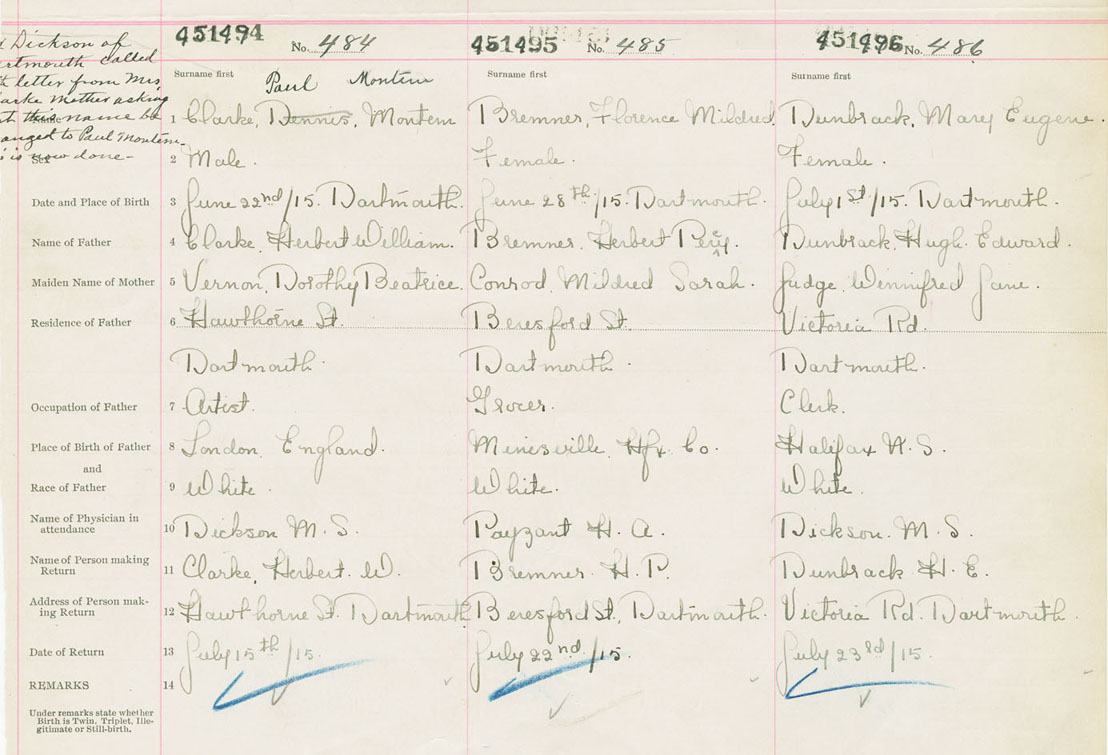 451494 No. 484 451495 No. 485 451496 No. 486
Dickson of
artmouth called
letter from Mrs.
arke Mother asking
name be
anged to Paul Montem.
is now done-
Surname first Surname first Surname first
Paul Montem
1 Clarke, Dennis, Montem Bremner, Florence Mildred. Dunbrack, Mary Eugene.
Sex 2 Male. Female. Female.
Date and Place of Birth 3 June 22nd/15. Dartmouth. June 28th/15. Dartmouth. July 1st/15. Dartmouth.
Name of Father 4 Clarke, Herbert William. Bremner, Herbert Percy. Dunbrack, Hugh Edward.
Maiden Name of Mother 5 Vernon, Dorothy Beatrice. Conrod, Mildred Sarah. Judge, Wennifred Jane.
Residence of Father 6 Hawthorne St. Beresford St. Victoria Rd.
Dartmouth Dartmouth. Dartmouth.
Occupation of Father 7 Artist. Grocer. Clerk.
Place of Birth of Father 8 London, England. Minesville, Hfx Co. Halifax N.S.
and
Race of Father 9 White. White. White.
Name of Physician in
attendance 10 Dickson M.S. Payzant H.A. Dickson. M.S.
Name of Person making
Return 11 Clarke, Herbert. W. Bremner. H.P. Dunbrack H.E.
Address of Person mak-
ing Return 12 Hawthorne St. Dartmouth Beresford St., Dartmouth. Victoria Rd. Dartmouth.
Date of Return 13 July 15th/15. July 22nd/15. July 23rd/15.
REMARKS 14
Under remarks state whether
Birth is Twin, Triplet, Ille-
gitimate or Still-birth.